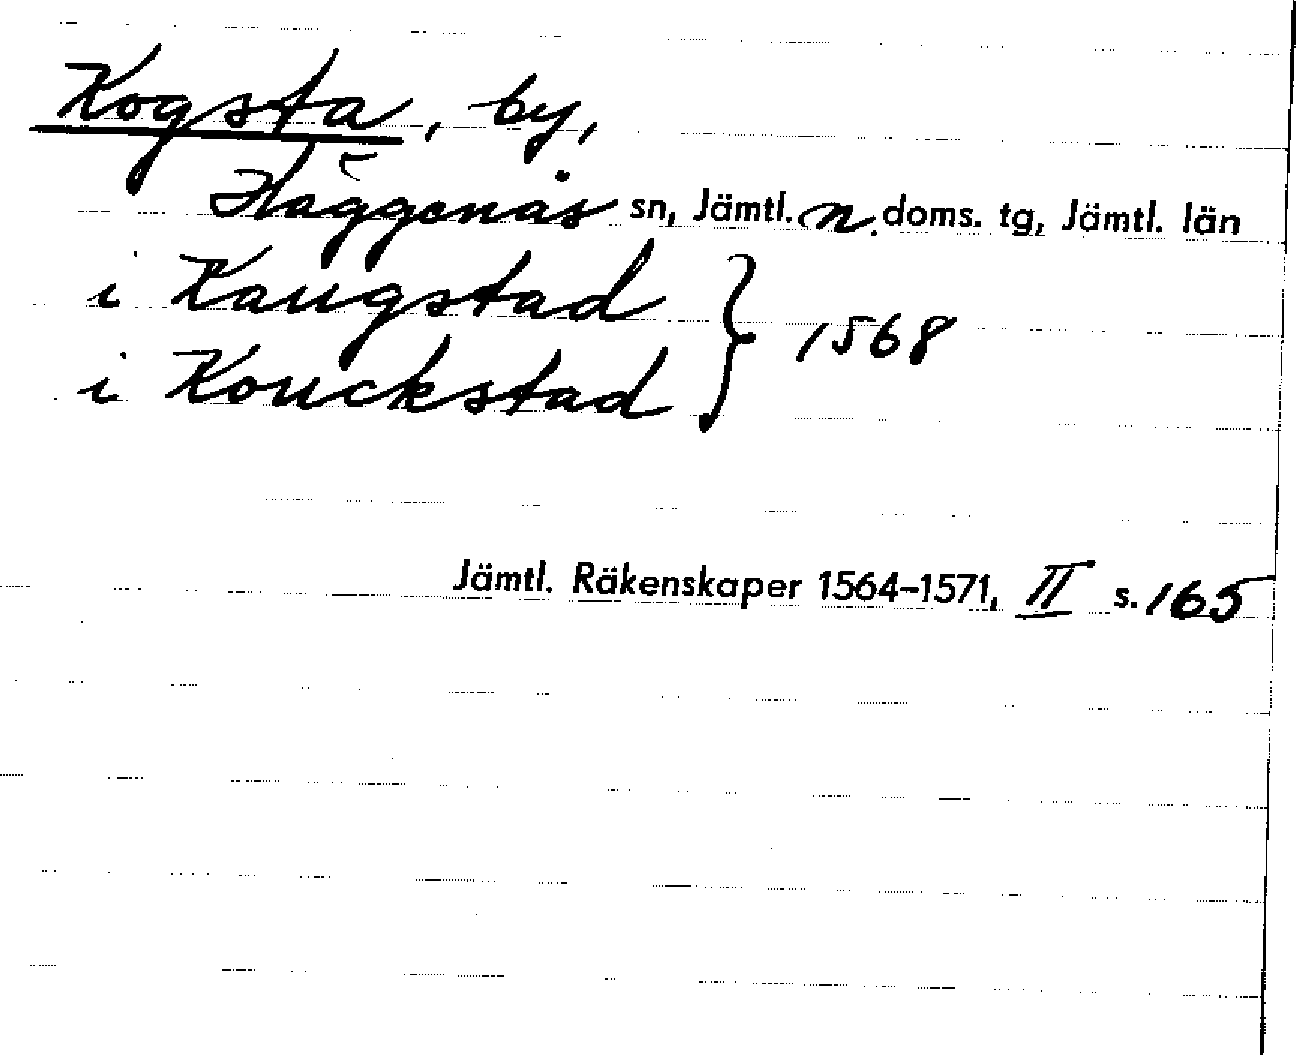 Kogsta, by,
Häggenås sn, Jämtl. n. doms. tg, Jämtl. län
i Kaugstad } 1568
i Kouckstad
Jämtl. Räkenskaper 1564-1571, II s. 165